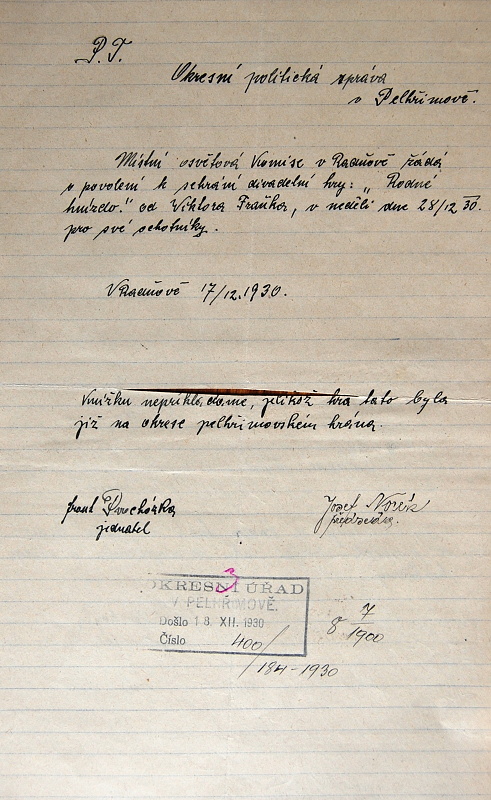 P.T.
Okresní politická správa
v Pelhřimově.
Místní osvětová Komise v Radňově žádá
o povolení k sehrání divadelní hry: „Rodné
hnízdo." od Viktora Fraňka, v neděli dne 28/12 30.
pro své ochotníky.
V Radňově 17/12.1930.
Knížku nepřikládáme, jelikož hra tato byla
již na okrese pelhřimovském hrána.
Frant Procházka
jednatel
Josef
předseda.
3
OKRESNÍ ÚŘAD
V PELHŘIMOVĚ.
Došlo 18. XII. 1930
Číslo 400/
/184-1930
8 7/1900